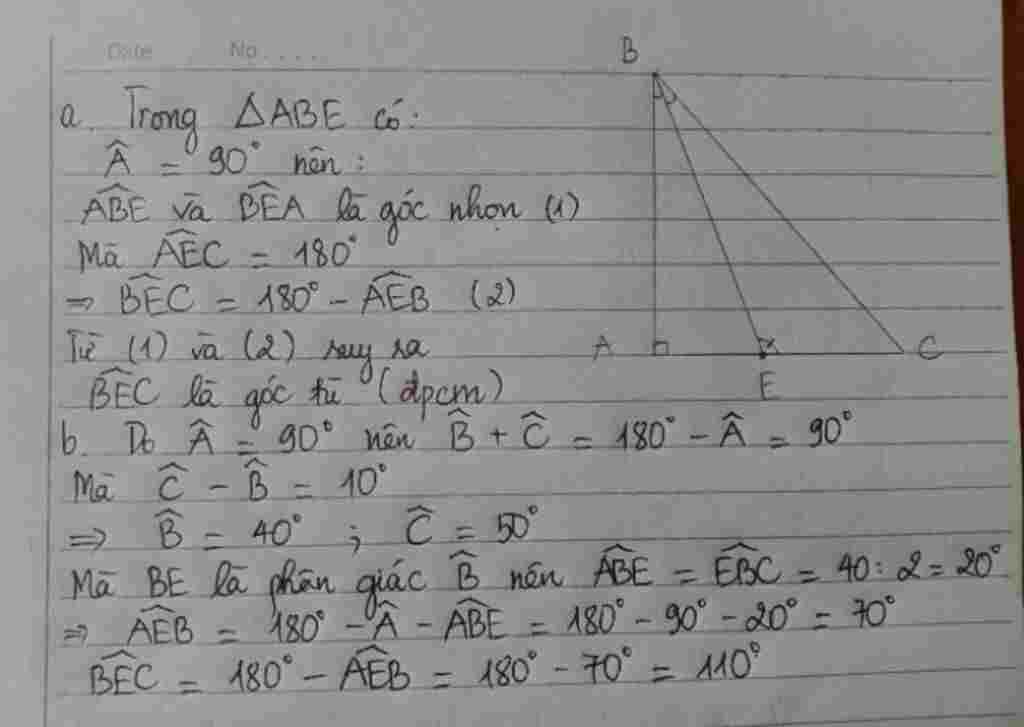 Date No....
B
a. Trong △ABE có:
Â = 90° nên:
\widehat{ABE} và \widehat{BEA} là góc nhọn (1)
Mà \widehat{AEC} = 180°
⇒ \widehat{BEC} = 180° - \widehat{AEB} (2)
Từ (1) và (2) suy ra
A C
E
\widehat{BEC} là góc tù (đpcm)
b. Do Â = 90° nên \widehat{B} + \widehat{C} = 180° - Â = 90°
Mà \widehat{C} - \widehat{B} = 10°
⇒ \widehat{B} = 40° ; \widehat{C} = 50°
Mà BE là phân giác \widehat{B} nên \widehat{ABE} = \widehat{EBC} = 40 : 2 = 20°
⇒ \widehat{AEB} = 180° - Â - \widehat{ABE} = 180° - 90° - 20° = 70°
\widehat{BEC} = 180° - \widehat{AEB} = 180° - 70° = 110°